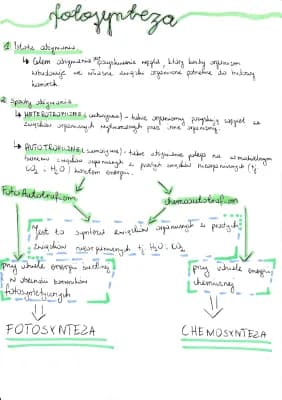 fotosynteza
1 Istota odżywiania
↳ Celem odżywiania jest pozyskiwanie węgla, który każdy organizm
wbudowuje we własne związki organiczne potrzebne do budowy
komórek.
2 Sposoby odżywiania
↳ HETEROTROFICZNE (cudzożywne) - takie organizmy pozyskują węgiel ze
związków organicznych wytworzonych przez inne organizmy.
↳ AUTOTROFICZNE (samożywne) - takie odżywianie polega na samodzielnym
tworzeniu związków organicznych z prostych związków nieorganicznych (tj
CO2 i H2O) kosztem energii.
FotoAutotrof-izm
chemoautotrof-izm
Jest to synteza związków organicznych z prostych
związków nieorganicznych tj H2O i CO2
przy udziale energii świetlnej
w obecności barwników
fotosyntetycznych
przy udziale energii
chemicznej
FOTOSYNTEZA
CHEMOSYNTEZA